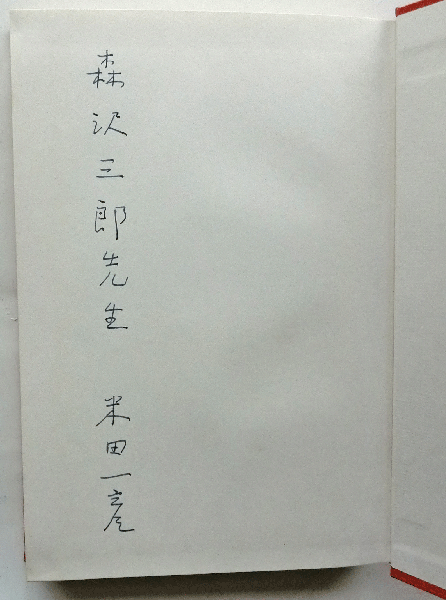 森沢三郎先生 米田一彦